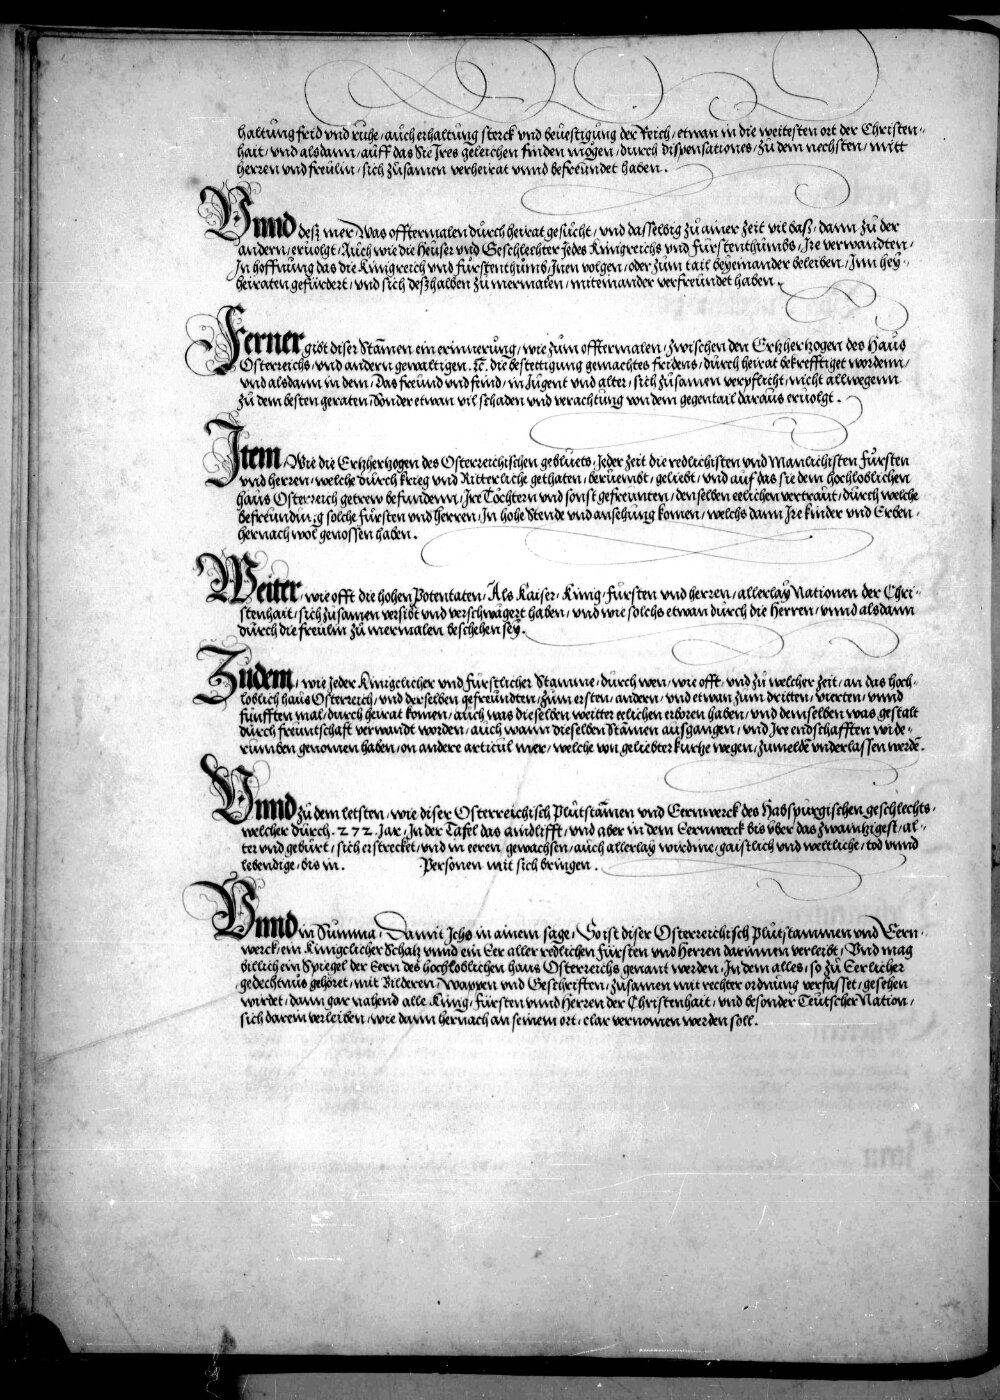 haltung frid vnd rŭhe, aŭch erhaltŭng sterck vnd beŭestigŭng der Reich, etwan in die weitesten ort der Christen-
hait, vnd alsdann, aŭff das Sie Jres geleichen finden mögen, dŭrch dispensationes, zŭ dem nechsten, mitt
herren vnd freŭlin, sich zŭsamen verheirat vnnd befreŭndet haben.
Vnnd desz mer, Was offtermalen dŭrch heirat gesŭcht, vnd dasselbig zŭ ainer zeit vil baß, dann zŭ der
andern, eruolgt, Aŭch wie die Heŭser vnd Geschlechter jedes Künigreichs vnd Fürstenthŭmbs, Jre verwandten,
Jn hoffnŭng das die Künigreich vnd fürstenthŭmb, Jnen volgen, oder zŭm tail beyeinander beleiben, Jnn hey-
heiraten gefürdert, vnd sich deßhalben zŭ mermalen, miteinander verfreŭndet haben.
Ferner gibt diser Stamen ein erinnerŭng, wie zŭm offtermalen, zwischen den Ertzhertzogen des Haŭs
Osterreichs, vnd andern gewaltigen. ꝛc. die bestettigŭng gemachtes fridens, dŭrch heirat bekrefftiget wordenn,
vnd alsdann in dem, Das freŭnd vnd feind, in Jŭgent vnd alter, sich zŭsamen verpflicht, nicht allwegenn
zŭ dem besten geraten, Sonder etwan vil schaden vnd verachtŭng von dem gegentail daraŭs eruolgt.
Jtem, Wie die Ertzhertzogen des Osterreichischen geblŭets, Jeder zeit die redlichisten vnd Manlichisten Fürsten
vnd herren, welche dŭrch krieg vnd Ritterliche gethaten, berüembt, geliebt, vnd aŭf das sie dem hochloblichen
haŭs Osterreich getrew befŭndenn, Jre Töchtern vnd sonst gefreŭnten, denselben eelichen vertraŭt, dŭrch welche
befreŭndŭng solche fürsten vnd herren, Jn hohe Stende vnd ansehŭng komen, welchs dann Jre kinder vnd Erben,
hernach wol genossen haben.
Weiter, wie offt die hohen Potentaten, Als Kaiser, Künig, Fürsten vnd herren, allerlay Nationen der Chri-
stenhait, sich zŭsamen versibt vnd verschwägert haben, vnd wie solchs etwan dŭrch die Herren, vnnd alsdann
dŭrch die freŭlin zŭ mermalen beschehen sey.
Zŭdem, wie jeder Küniglicher vnd fürstlicher Stamme, dŭrch wen, wie offt, vnd zŭ welcher zeit, an das hoch-
loblich haŭs Osterreich, vnd derselben gefreŭndten, zŭm ersten, andern, vnd etwan zŭm dritten, vierten, vnnd
fünfften mal, dŭrch heirat komen, aŭch was dieselben weitter eelichen erboren haben, vnd demselben was gestalt
dŭrch freŭntschaft verwandt worden, aŭch wann dieselben Stamen aŭsgangen, vnd Jre endschafften wide-
rŭmben genomen haben, on andere articŭl mer, welche von geliebter kŭrtze wegen, zŭmeldē vnderlassen werdē.
Vnnd zŭ dem letsten, wie diser Osterreichisch Plŭtstamen vnd Eernwerck des Habspŭrgischen geschlechts,
welcher dŭrch. 272. Jar, Jn der Tafel das aindlifft, vnd aber in dem Eernwerck bis vber das zwaintzigest, al-
ter vnd gebŭrt, sich erstrecket, vnd in eeren gewachsen, aŭch allerlay wirdine, gaistlich vnd weltliche, tod vnnd
lebendige, bis in. Personen mit sich bringen.
Vnnd in Sŭmma, Damit Jchs in ainem sage, So ist diser Osterreichisch Plŭtstammen vnd Eern-
werck, ein Küniglicher Schatz vnnd ein Eer aller redlichen Fürsten vnd Herren darinnen verleibt, Vnd mag
billich ein Spiegel der Eern des hochloblichen haŭs Osterreichs genant werden, Jn dem alles, so zŭ Eerlicher
gedechtnŭs gehöret, mit Bilderen, Wappen vnd Geschrifften, zŭsamen mit rechter ordnŭng verfasset, gesehen
wirdet, dann gar nahend alle Künig, Fürsten vnnd Herren der Christenhait, vnd besonder Teŭtscher Nation,
sich darein verleiben, wie dann hernach an seinem ort, clar vernomen werden soll.